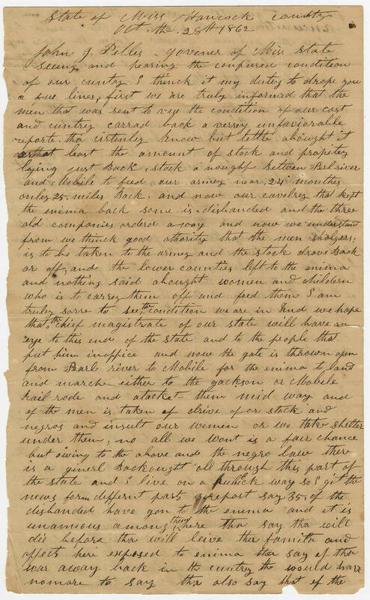 State of Miss Hancock County
Oct the 28th 1862
John J. Pettes Govener of Miss State
Seeing and hearing the confused condition
of our cuntry I think it my duty to drope you
a few lines, first we are truly informed that the
men that was sent to vew the condition of our cost
and cuntry carrad back a verry unfaviorable
reporte, tha certinly know but little abought it
at least the amount of stock and propitey
laying just back, stock a nought between Perl river
and Mobile to feed our army near 24 months
only 25 miles back, and now our cavelrey that kept
the enima back some is disbanded and the three
old companies ordrd away and now we understand
from we think good athority that the men
is to be taken to the army and the stock drove back
or off, and the lower counties left to the enima
and nothing said abought women and children
who is to carrey them off and feed them I am
truly sorre to see the condition we are in and we hope
that the chief magistrate of our state will have an
eye to this end of the state and to the people that
put him in office and now the gate is thrown open
from Pearl river to Mobile for the enima to land
and marche either to the Jackson or Mobile
rail rode and atacket them mid way and
if the men is taken of or drive of or stock and
negros and insult our women or we take shelter
under them, no all we wont is a fair chance
but owing to the above and the negro law there
is a ginerl backought all through this part of
the state and I live on a publick way so I git the
news form differnt parts, report say 35 of the
disbanded have gon to the enima and it is
unanimous among them here tha say tha will
die before tha will leive ther familta and
affects here exposed to enima tha say if tha
was away back in the cuntry tha would have
nomore to say tha also say that if the